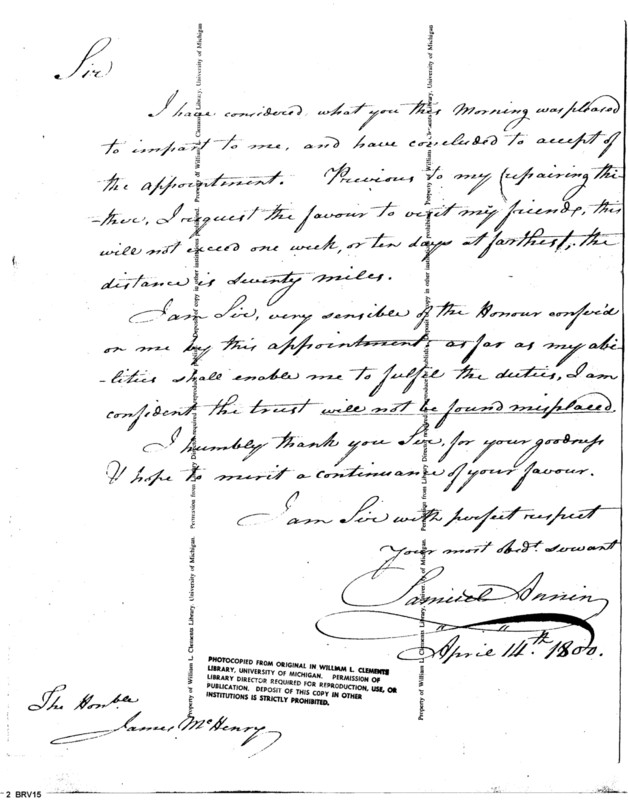 Sir
I have considered what you this Morning was pleased
to impart to me, and have concluded to accept of
the appointment. Previous to my repairing thi-
-ther, I request the favour to visit my friends, this
will not exceed one week, or ten days at farthest, the
distance is seventy miles.
I am Sir, very sensible of the Honour confer'd
on me by this appointment as far as my abi-
-lities shall enable me to fulfil the duties, I am
confident the trust will not be found misplaced.
I humbly thank you Sir, for your goodness
& hope to merit a continuance of your favour.
I am Sir with perfect respect
Your most obedt. servant
Samuel Annin
April 14th. 1800.
The Honble
James McHenry
PHOTOCOPIED FROM ORIGINAL IN WILLIAM L. CLEMENTS
LIBRARY, UNIVERSITY OF MICHIGAN. PERMISSION OF
LIBRARY DIRECTOR REQUIRED FOR REPRODUCTION, USE, OR
PUBLICATION. DEPOSIT OF THIS COPY IN OTHER
INSTITUTIONS IS STRICTLY PROHIBITED.
Property of William L. Clements Library, University of Michigan. Permission from Library Director required for reproduction, publication. Deposit of copy in other institutions prohibited. Property of William L. Clements Library, University of Michigan
Property of William L. Clements Library, University of Michigan. Permission from Library Director required for reproduction, publication. Deposit of copy in other institutions prohibited. Property of William L. Clements Library, University of Michigan
2 BRV15